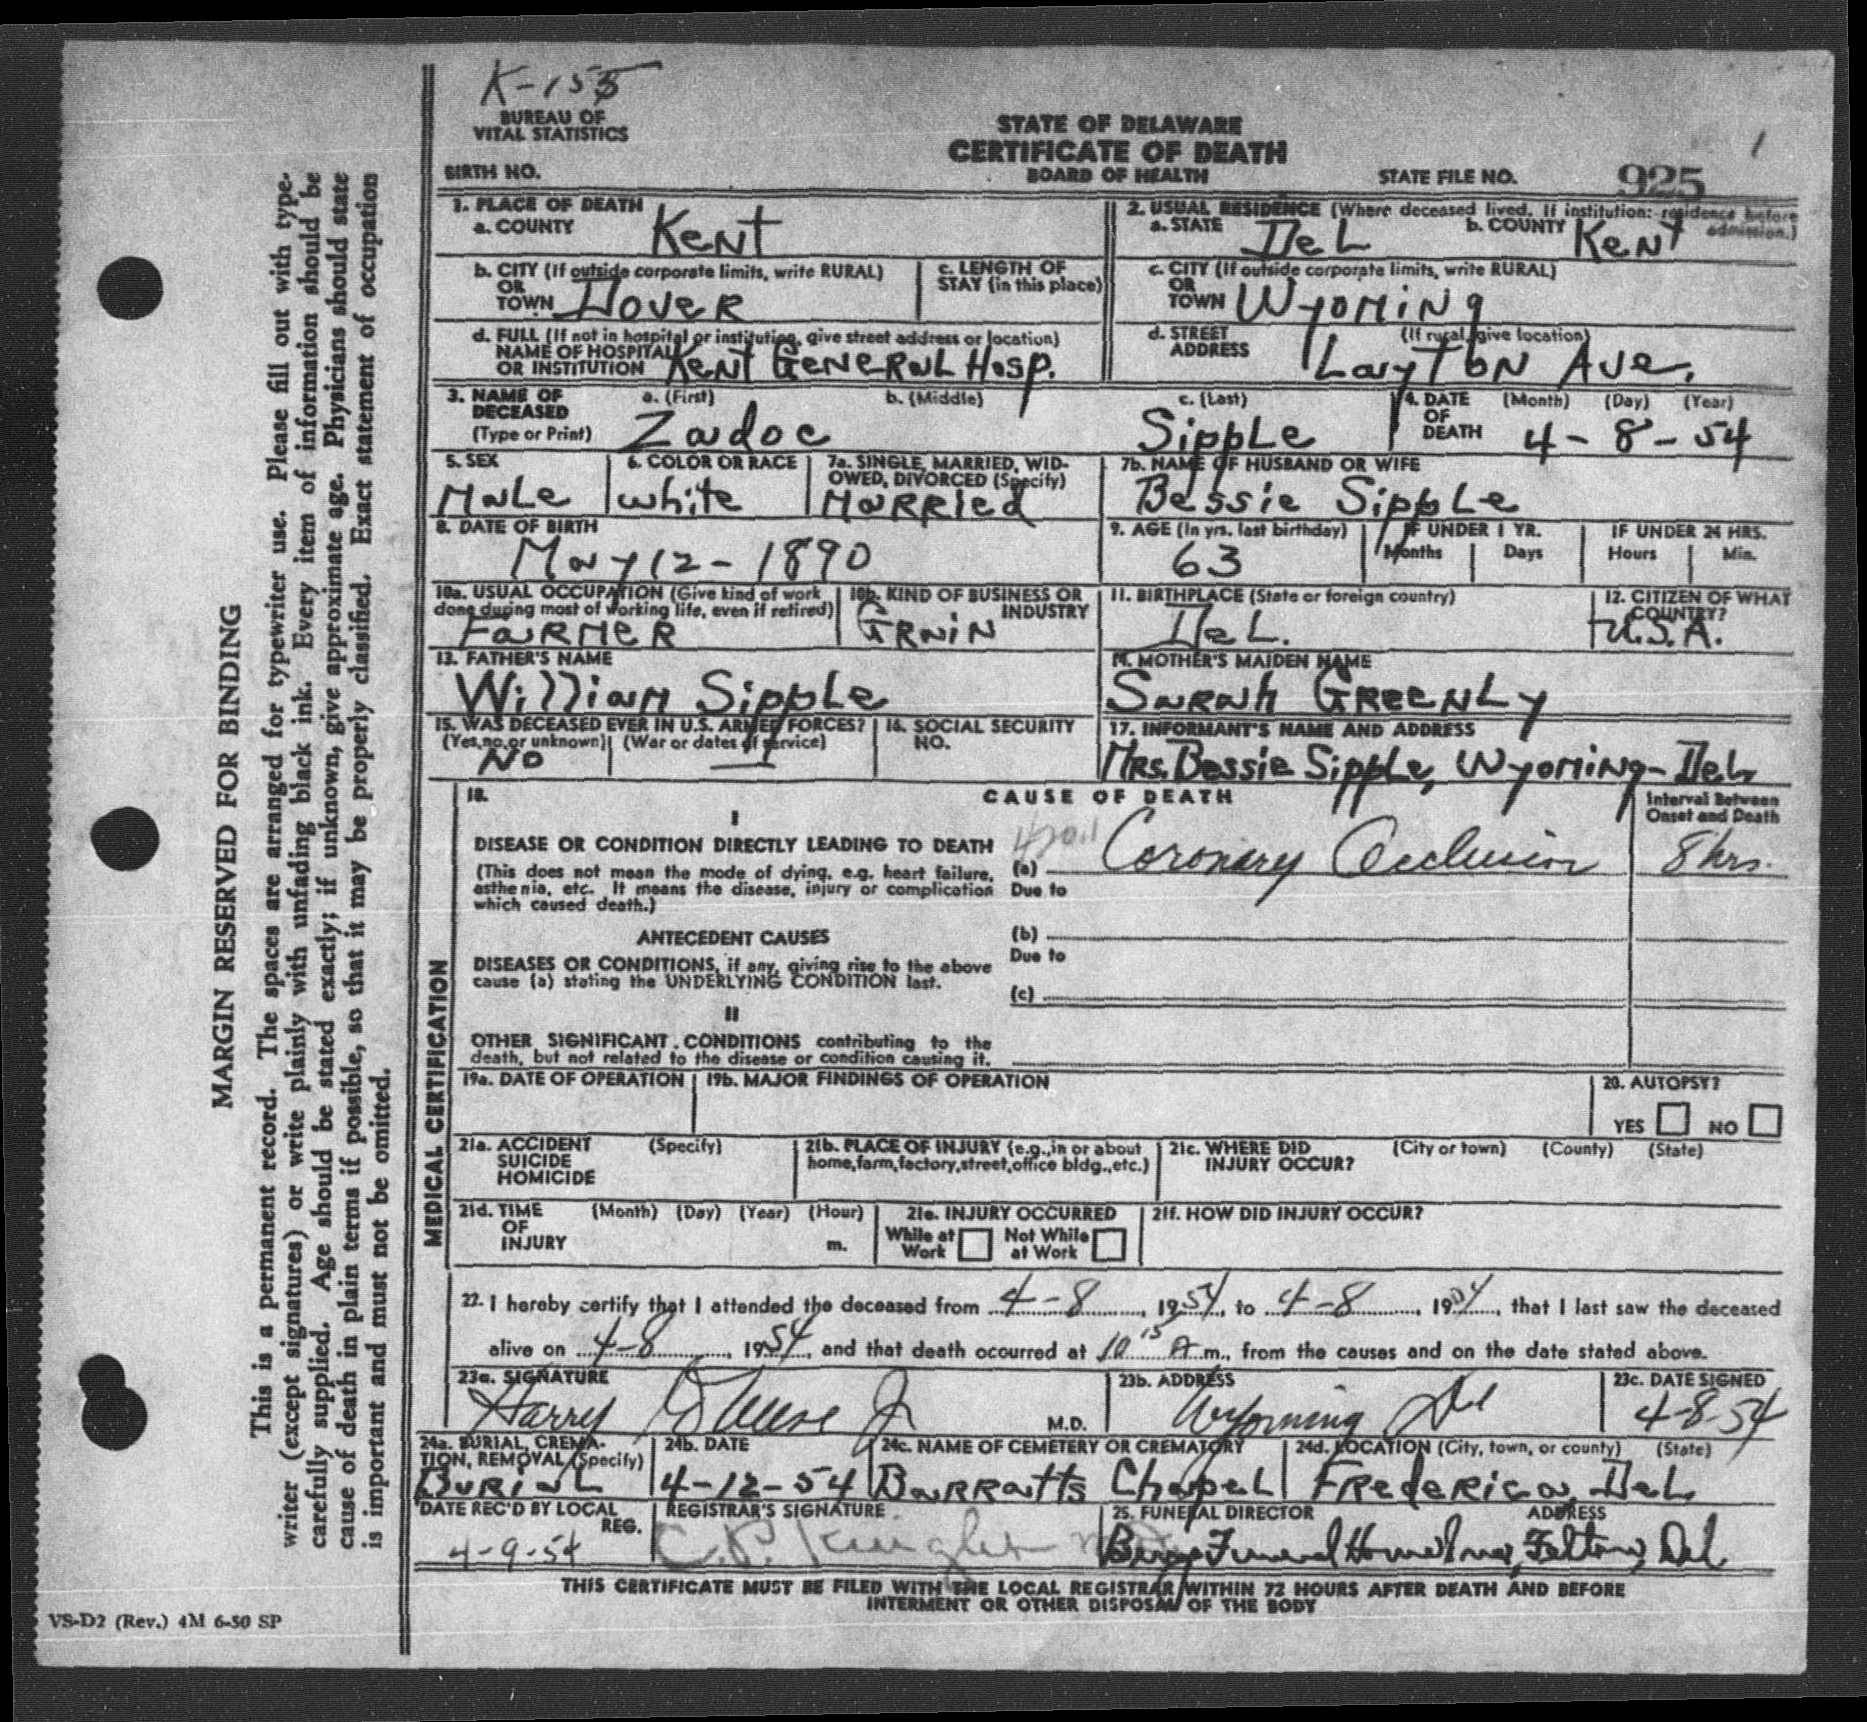 K-155
BUREAU OF
VITAL STATISTICS
STATE OF DELAWARE
CERTIFICATE OF DEATH
BOARD OF HEALTH
BIRTH NO.
STATE FILE NO. 925
1
1. PLACE OF DEATH
a. COUNTY Kent
2. USUAL RESIDENCE (Where deceased lived. If institution: residence before admission.)
a. STATE Del b. COUNTY Kent
b. CITY (If outside corporate limits, write RURAL)
OR
TOWN Dover
c. LENGTH OF
STAY (in this place)
c. CITY (If outside corporate limits, write RURAL)
OR
TOWN Wyoming
d. FULL (If not in hospital or institution, give street address or location)
NAME OF HOSPITAL
OR INSTITUTION Kent General Hosp.
d. STREET (If rural, give location)
ADDRESS Layton Ave.
3. NAME OF
DECEASED
(Type or Print)
a. (First) b. (Middle) c. (Last)
Zadoc Sipple
4. DATE (Month) (Day) (Year)
OF
DEATH 4-8-54
5. SEX
Male
6. COLOR OR RACE
White
7a. SINGLE, MARRIED, WID-
OWED, DIVORCED (Specify)
Married
7b. NAME OF HUSBAND OR WIFE
Bessie Sipple
8. DATE OF BIRTH
May 12-1890
9. AGE (In yrs. last birthday)
63
IF UNDER 1 YR.
Months Days
IF UNDER 24 HRS.
Hours Min.
10a. USUAL OCCUPATION (Give kind of work
done during most of working life, even if retired)
Farmer
10b. KIND OF BUSINESS OR
INDUSTRY
Grain
11. BIRTHPLACE (State or foreign country)
Del.
12. CITIZEN OF WHAT
COUNTRY?
U.S.A.
13. FATHER'S NAME
William Sipple
14. MOTHER'S MAIDEN NAME
Sarah Greenly
15. WAS DECEASED EVER IN U.S. ARMED FORCES?
(Yes, no, or unknown) (War or dates of service)
No —
16. SOCIAL SECURITY
NO.
17. INFORMANT'S NAME AND ADDRESS
Mrs. Bessie Sipple, Wyoming-Del
MEDICAL CERTIFICATION
18. CAUSE OF DEATH
Interval Between
Onset and Death
I
DISEASE OR CONDITION DIRECTLY LEADING TO DEATH
420.1
(a) Coronary Occlusion 8 hrs.
(This does not mean the mode of dying, e.g. heart failure,
asthenia, etc. It means the disease, injury or complication
which caused death.)
Due to
ANTECEDENT CAUSES
(b)
Due to
DISEASES OR CONDITIONS, if any, giving rise to the above
cause (a) stating the UNDERLYING CONDITION last.
(c)
II
OTHER SIGNIFICANT CONDITIONS contributing to the
death, but not related to the disease or condition causing it.
19a. DATE OF OPERATION
19b. MAJOR FINDINGS OF OPERATION
20. AUTOPSY?
YES NO
21a. ACCIDENT (Specify)
SUICIDE
HOMICIDE
21b. PLACE OF INJURY (e.g., in or about
home, farm, factory, street, office bldg., etc.)
21c. WHERE DID (City or town) (County) (State)
INJURY OCCUR?
21d. TIME (Month) (Day) (Year) (Hour)
OF
INJURY m.
21e. INJURY OCCURRED
While at Work Not While at Work
21f. HOW DID INJURY OCCUR?
22. I hereby certify that I attended the deceased from 4-8, 1954, to 4-8, 1954, that I last saw the deceased
alive on 4-8, 1954, and that death occurred at 10 15 A m., from the causes and on the date stated above.
23a. SIGNATURE
Harry Jr M.D.
23b. ADDRESS
Wyoming Del
23c. DATE SIGNED
4-8-54
24a. BURIAL, CREMA-
TION, REMOVAL (Specify)
Burial
24b. DATE
4-12-54
24c. NAME OF CEMETERY OR CREMATORY
Barratts Chapel
24d. LOCATION (City, town, or county) (State)
Frederica, Del.
DATE REC'D BY LOCAL
REG.
4-9-54
REGISTRAR'S SIGNATURE
C.P.
25. FUNERAL DIRECTOR ADDRESS
Funeral Home Felton, Del.
THIS CERTIFICATE MUST BE FILED WITH THE LOCAL REGISTRAR WITHIN 72 HOURS AFTER DEATH AND BEFORE
INTERMENT OR OTHER DISPOSAL OF THE BODY
VS-D2 (Rev.) 4M 6-50 SP
MARGIN RESERVED FOR BINDING
This is a permanent record. The spaces are arranged for typewriter use. Please fill out with type-
writer (except signatures) or write plainly with unfading black ink. Every item of information should be
carefully supplied. Age should be stated exactly; if unknown, give approximate age. Physicians should state
cause of death in plain terms if possible, so that it may be properly classified. Exact statement of occupation
is important and must not be omitted.